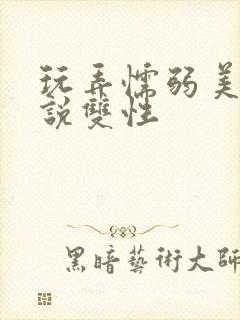 玩弄懦弱美
說雙性
黑暗藝術大師